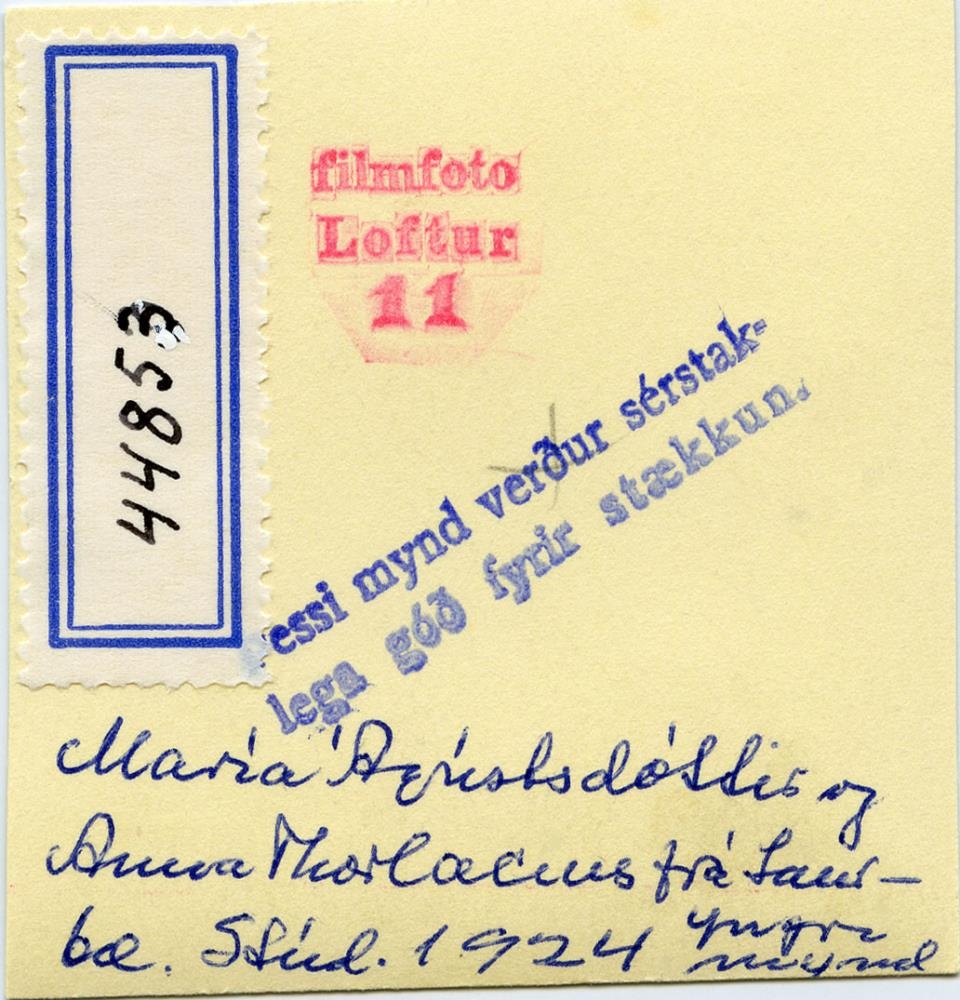 44853
filmfoto
Loftur
11
essi mynd verður sérstak-
lega góð fyrir stækkun.
María Ágústsdóttir og
Anna Thorlacius frá Saur-
bæ. Stúd. 1924 yngri
mynd